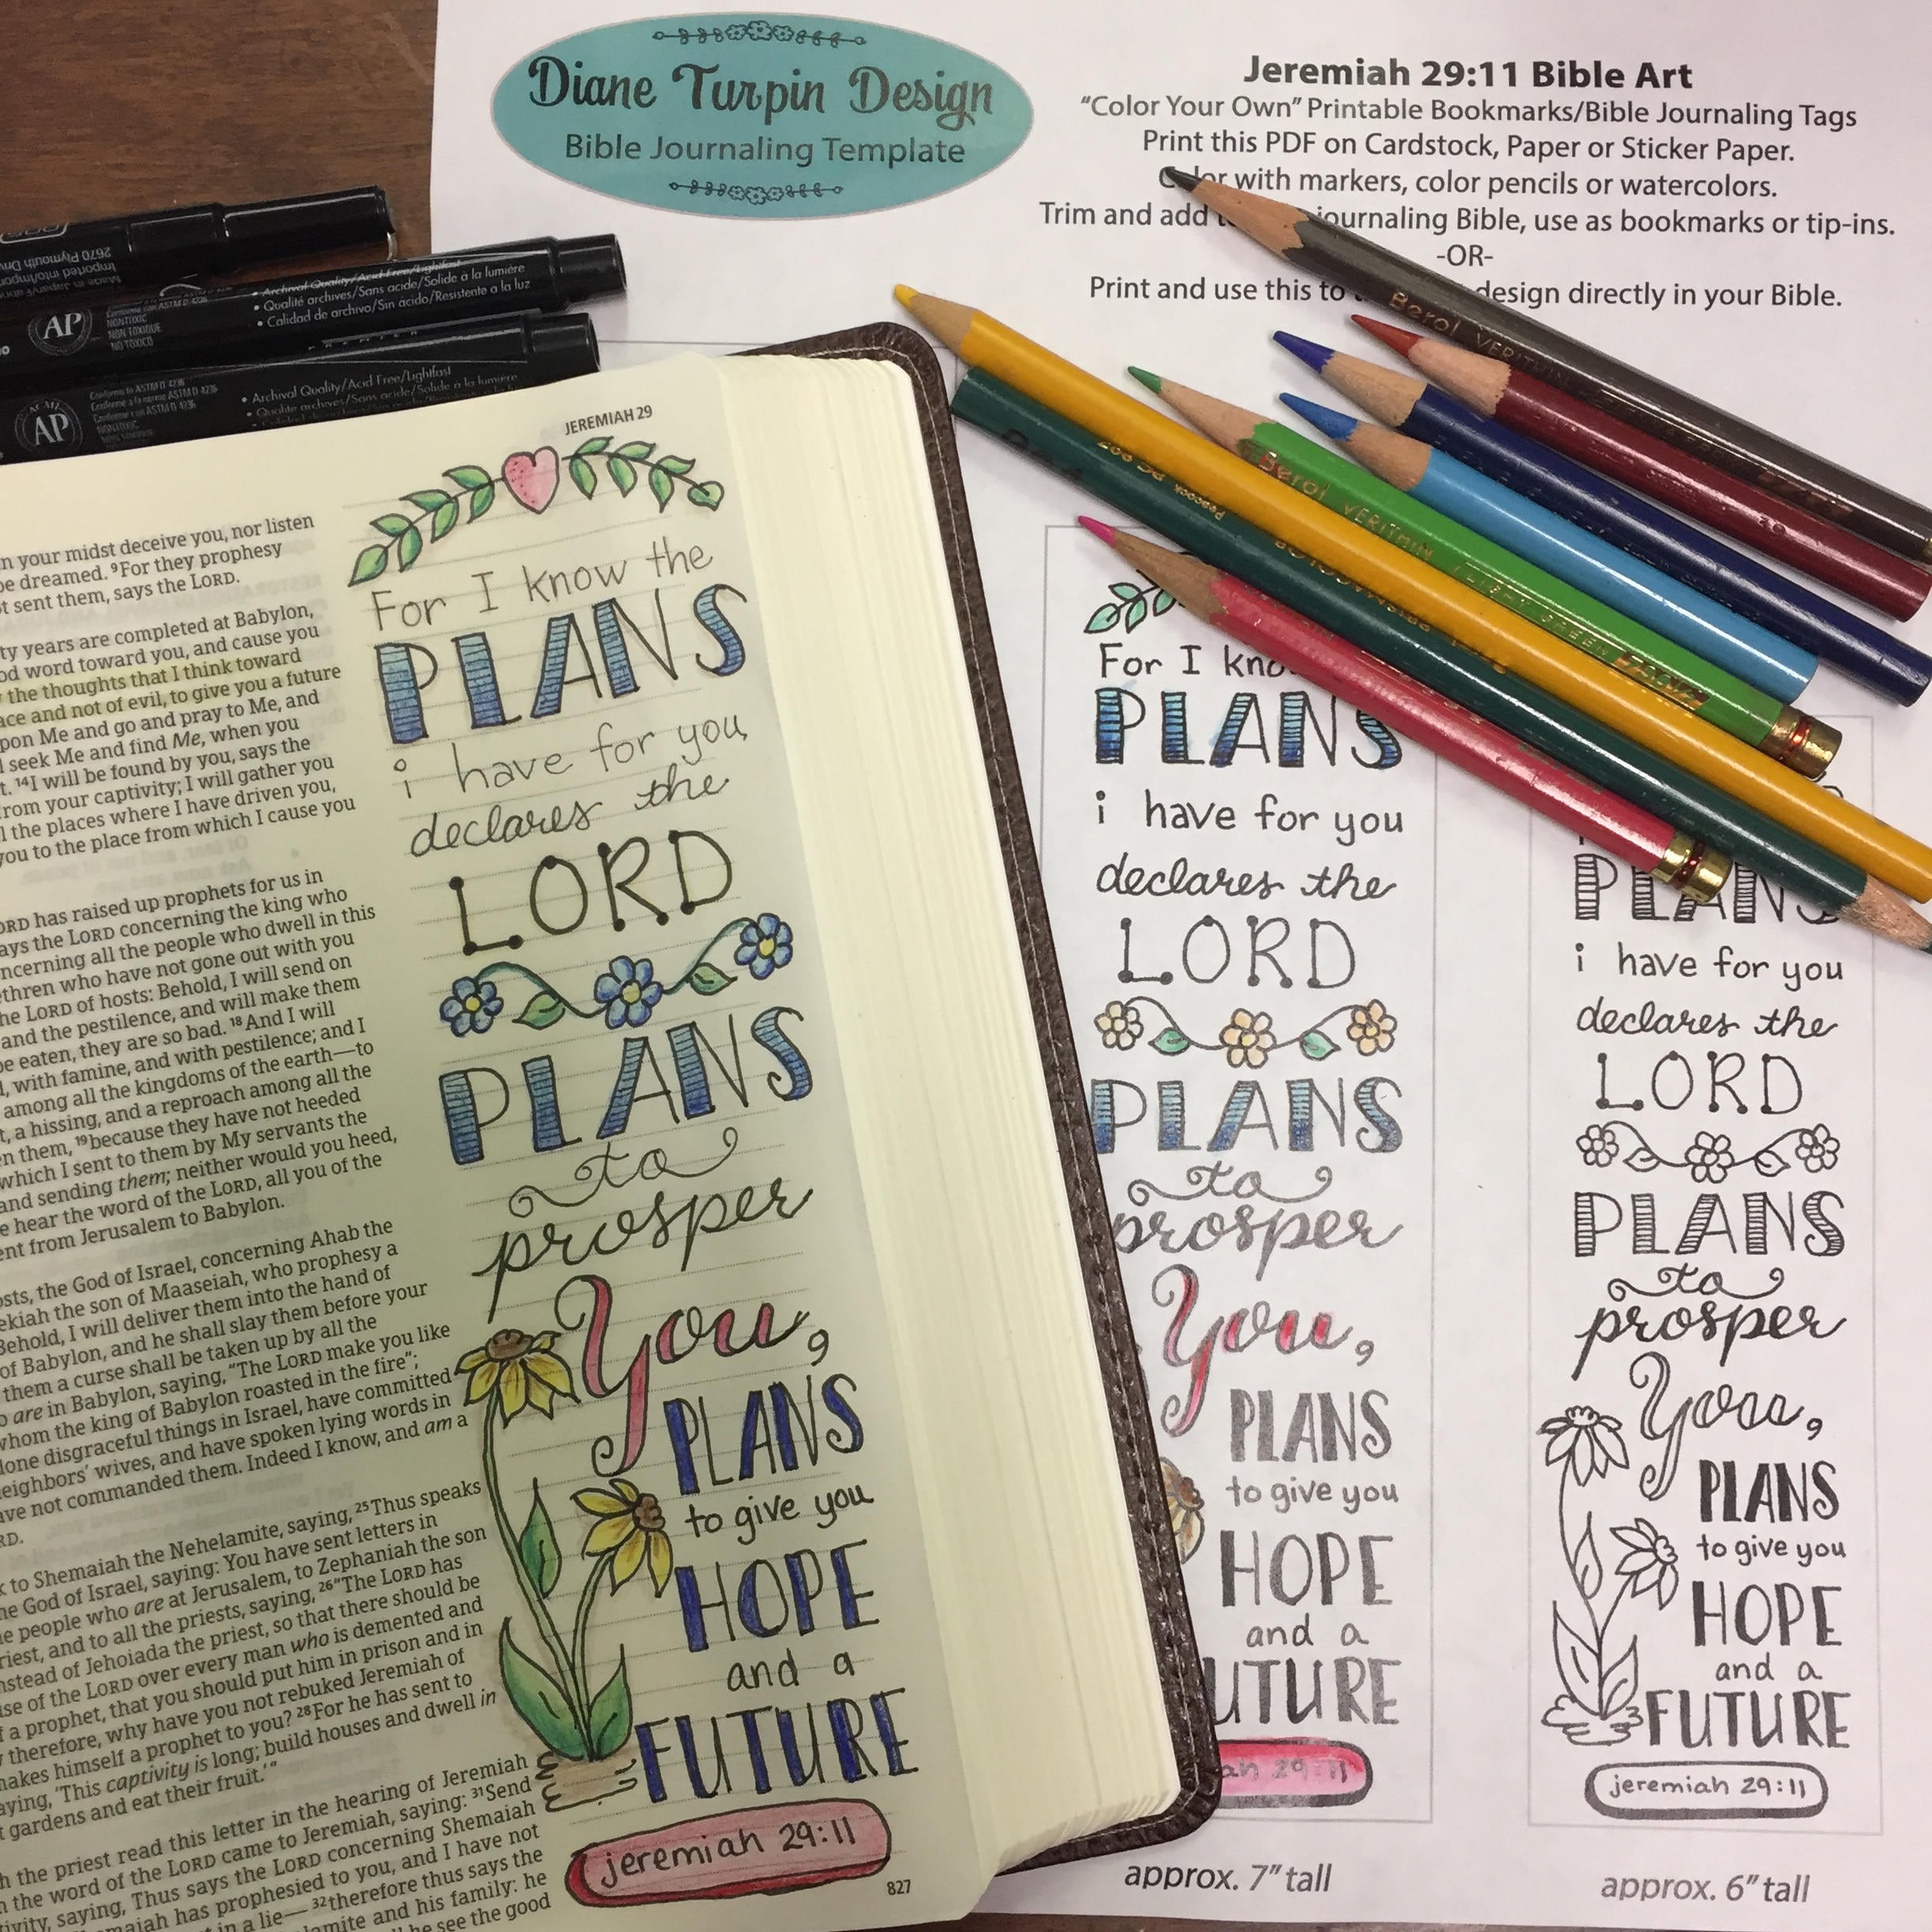 Diane Turpin Design
Bible Journaling Template
Jeremiah 29:11 Bible Art
"Color Your Own" Printable Bookmarks/Bible Journaling Tags
Print this PDF on Cardstock, Paper or Sticker Paper.
with markers, color pencils or watercolors.
Trim and add journaling Bible, use as bookmarks or tip-ins.
-OR-
Print and use this to design directly in your Bible.
2670 Plymouth
AP
NONTOXIC
NON TOXIQUE
NO TOXICO
• Archival Quality/Acid Free/Lightfast
• Qualité archives/Sans acide/Solide à la lumière
• Calidad de archivo/Sin ácido/Resistente a la luz
AP
Conforms to ASTM D 4236
• Archival Quality/Acid Free/Lightfast
• Qualité archives/Sans acide/Solide à la lumière
Berol VERITHIN
Berol VERITHIN
PRISMACOLOR
JEREMIAH 29
in your midst deceive you, nor listen
be dreamed. ⁹For they prophesy
sent them, says the LORD.
years are completed at Babylon,
word toward you, and cause you
the thoughts that I think toward
and not of evil, to give you a future
upon Me and go and pray to Me, and
seek Me and find Me, when you
¹⁴I will be found by you, says the
from your captivity; I will gather you
the places where I have driven you,
you to the place from which I cause you
LORD has raised up prophets for us in
says the LORD concerning the king who
concerning all the people who dwell in this
brethren who have not gone out with you
the LORD of hosts: Behold, I will send on
and the pestilence, and will make them
be eaten, they are so bad. ¹⁸And I will
with famine, and with pestilence; and I
among all the kingdoms of the earth—to
a hissing, and a reproach among all the
them, ¹⁹because they have not heeded
which I sent to them by My servants the
and sending them; neither would you heed,
hear the word of the LORD, all you of the
sent from Jerusalem to Babylon.
hosts, the God of Israel, concerning Ahab the
Zedekiah the son of Maaseiah, who prophesy a
Behold, I will deliver them into the hand of
of Babylon, and he shall slay them before your
them a curse shall be taken up by all the
are in Babylon, saying, "The LORD make you like
whom the king of Babylon roasted in the fire";
done disgraceful things in Israel, have committed
neighbors' wives, and have spoken lying words in
have not commanded them. Indeed I know, and am a
to Shemaiah the Nehelamite, saying, ²⁵Thus speaks
the God of Israel, saying: You have sent letters in
people who are at Jerusalem, to Zephaniah the son
priest, and to all the priests, saying, ²⁶"The LORD has
instead of Jehoiada the priest, so that there should be
of the LORD over every man who is demented and
a prophet, that you should put him in prison and in
therefore, why have you not rebuked Jeremiah of
makes himself a prophet to you? ²⁸For he has sent to
saying, 'This captivity is long; build houses and dwell in
gardens and eat their fruit.'"
the priest read this letter in the hearing of Jeremiah
the word of the LORD came to Jeremiah, saying: ³¹Send
saying, Thus says the LORD concerning Shemaiah
has prophesied to you, and I have not
in a lie— ³²therefore thus says the
and his family: he
see the good
For I know the
PLANS
i have for you
declares the
LORD
PLANS
to
prosper
You,
PLANS
to give you
HOPE
and a
FUTURE
jeremiah 29:11
827
For I
PLANS
i have for you
declares the
LORD
PLANS
to
prosper
You,
PLANS
to give you
HOPE
and a
UTURE
ah 29:11
approx. 7" tall
PLANS
i have for you
declares the
LORD
PLANS
to
prosper
You,
PLANS
to give you
HOPE
and a
FUTURE
jeremiah 29:11
approx. 6" tall